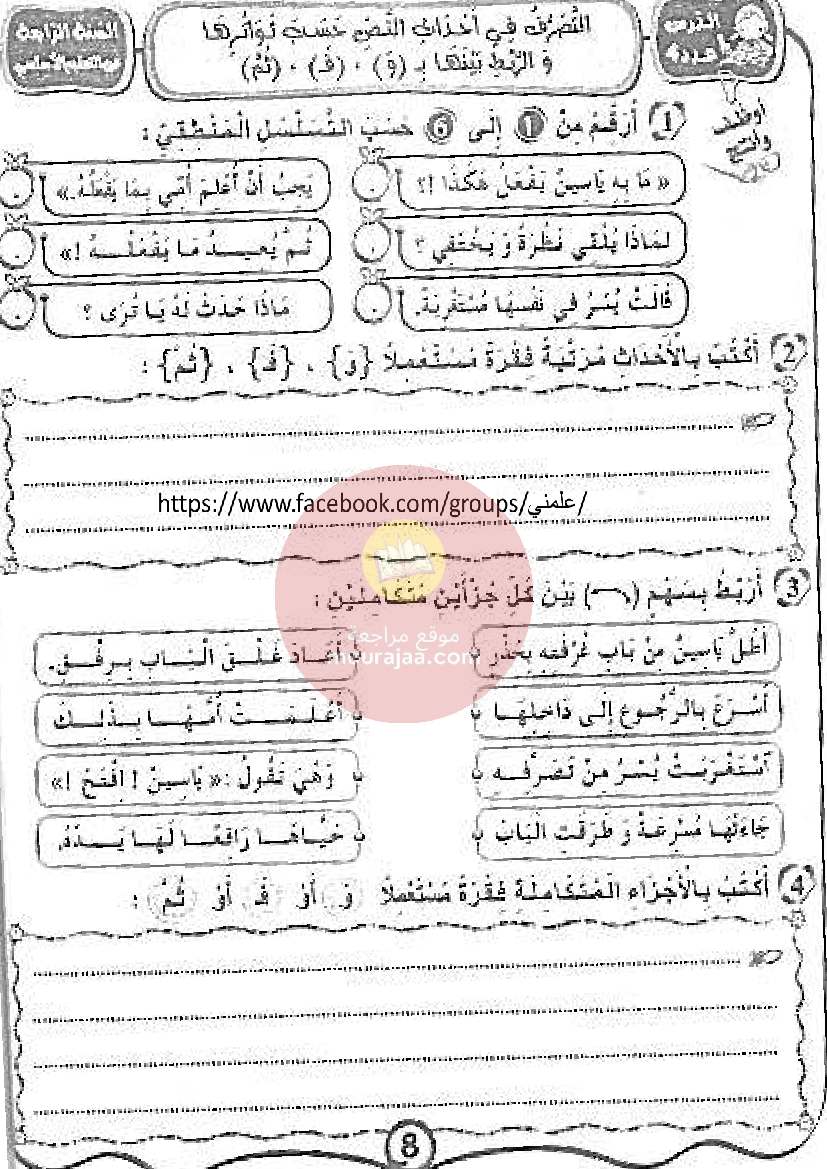 السنة الرابعة
من التعليم الأساسي
التَّصَرُّفُ فِي أَحْدَاثِ النَّصِّ حَسَبَ تَوَاتُرِهَا
وَ الرَّبْطِ بَيْنَهَا بِـ (وَ) ، (فَـ) ، (ثُمَّ)
أوظف
وأنتج
1 أُرَقِّمُ مِنْ 1 إِلَى 6 حَسَبَ التَّسَلْسُلِ الْمَنْطِقِيِّ :
« مَا بِهِ يَاسِينُ يَفْعَلُ هَكَذَا !؟
يَجِبُ أَنْ أُعْلِمَ أُمِّي بِمَا يَفْعَلُهُ.»
لِمَاذَا يُلْقِي نَظْرَةً وَ يَخْتَفِي ؟
ثُمَّ يُعِيدُ مَا يَفْعَلُهُ !»
قَالَتْ يُسْرُ فِي نَفْسِهَا مُسْتَغْرِبَةً.
مَاذَا حَدَثَ لَهُ يَا تُرَى ؟
2 أَكْتُبُ بِالْأَحْدَاثِ مُرَتَّبَةً فِقْرَةً مُسْتَعْمِلًا {وَ} ، {فَـ} ، {ثُمَّ} :
https://www.facebook.com/groups/علمني/
3 أَرْبِطُ بِسَهْمٍ ( ) بَيْنَ كُلِّ جُزْأَيْنِ مُتَكَامِلَيْنِ :
موقع مراجعة
mourajaa.com
أَطَلَّ يَاسِينُ مِنْ بَابِ غُرْفَتِهِ بِحَذَرٍ
أَعَادَ غَلْقَ الْبَابِ بِرِفْقٍ.
أَسْرَعَ بِالرُّجُوعِ إِلَى دَاخِلِهَا
أَعْلَمَتْ أُمَّهَا بِذَلِكَ
اسْتَغْرَبَتْ يُسْرُ مِنْ تَصَرُّفِهِ
وَهْيَ تَقُولُ :« يَاسِينُ ! اِفْتَحْ !»
جَاءَتْهَا مُسْرِعَةً وَ طَرَقَتِ الْبَابَ
حَيَّاهَا رَافِعًا لَهَا يَدَهُ.
4 أَكْتُبُ بِالْأَجْزَاءِ الْمُتَكَامِلَةِ فِقْرَةً مُسْتَعْمِلًا وَ أَوْ فَـ أَوْ ثُمَّ :
8